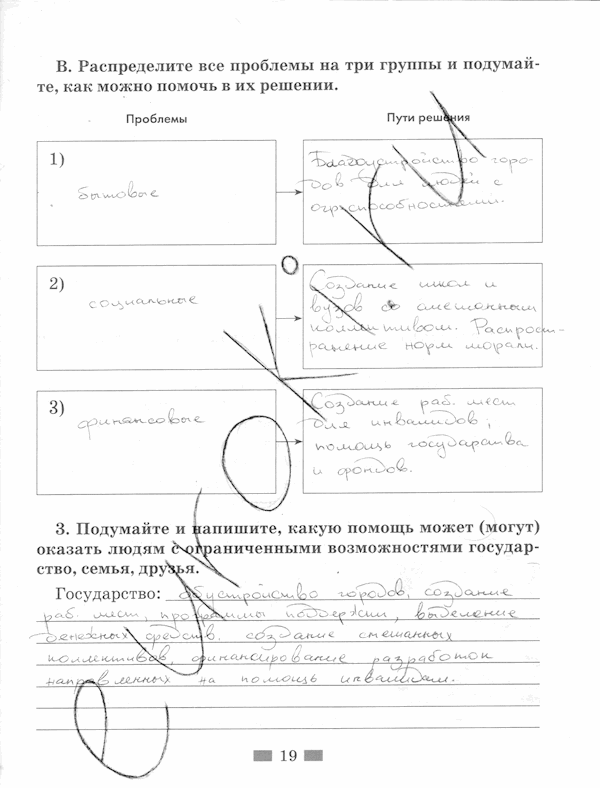 В. Распределите все проблемы на три группы и подумай-
те, как можно помочь в их решении.
Проблемы
Пути решения
1)
бытовые
Благоустройство горо-
дов для людей с
огр. способностями.
2)
социальные
Создание школ и
вузов со смешанным
коллективом. Распрост-
ранение норм морали.
3)
финансовые
Создание раб. мест
для инвалидов;
помощь государства
и фондов.
3. Подумайте и напишите, какую помощь может (могут)
оказать людям с ограниченными возможностями государ-
ство, семья, друзья.
Государство: обустройство городов, создание
раб. мест, программы поддержки, выделение
денежных средств, создание смешанных
коллективов, финансирование разработок
направленных на помощь инвалидам.
19